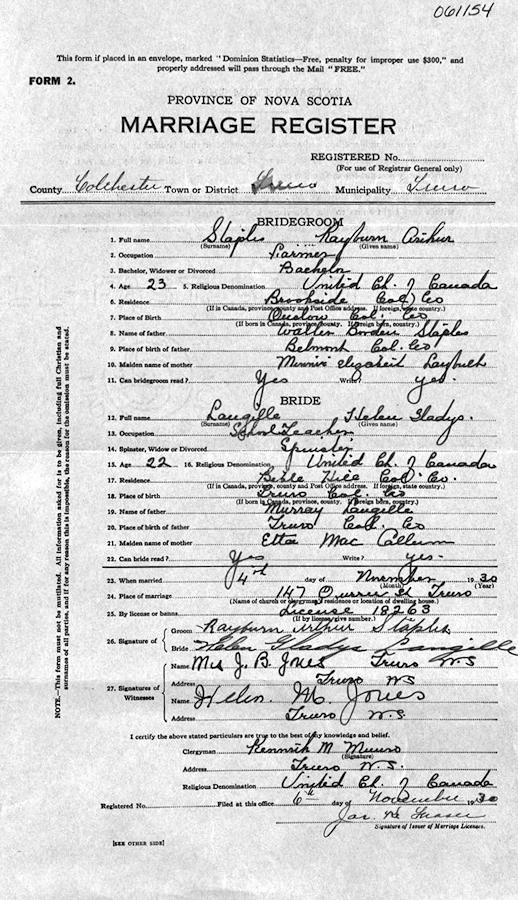 061154
This form if placed in an envelope, marked "Dominion Statistics—Free, penalty for improper use $300," and
properly addressed will pass through the Mail "FREE."
FORM 2.
PROVINCE OF NOVA SCOTIA
MARRIAGE REGISTER
REGISTERED No.
(For use of Registrar General only)
County Colchester Town or District Truro Municipality Truro
BRIDEGROOM
1. Full name Staples Rayburn Arthur
(Surname) (Given name)
2. Occupation Farmer
3. Bachelor, Widower or Divorced Bachelor
4. Age 23 5. Religious Denomination United Ch. of Canada
6. Residence Brookside Col. Co
(If in Canada, province, county and Post Office address. If foreign, state country.)
7. Place of Birth Onslow Col. Co
(If born in Canada, province, county. If foreign born, country.)
8. Name of father Walter Borden Staples
9. Place of birth of father Belmont Col. Co
10. Maiden name of mother Minnie Elizabeth
11. Can bridegroom read? Yes Write? yes.
BRIDE
12. Full name Langille Helen Gladys.
(Surname) (Given name)
13. Occupation School Teacher
14. Spinster, Widow or Divorced Spinster
15. Age 22 16. Religious Denomination United Ch. of Canada
17. Residence Bible Hill Col. Co.
(If in Canada, province, county and Post Office address. If foreign, state country.)
18. Place of birth Truro Col. Co
(If born in Canada, province, county. If foreign born, country.)
19. Name of father Murray Langille
20. Place of birth of father Truro Col. Co
21. Maiden name of mother Etta Mac Callum
22. Can bride read? Yes Write? yes.
23. When married 4th day of November 1930
(Month) (Year)
24. Place of marriage 147 Queen St Truro
(Name of church or clergyman's residence or location of dwelling house.)
25. By license or banns License 18263
(If by license give number.)
26. Signature of
Groom Rayburn Arthur Staples
Bride Helen Gladys Langille
27. Signatures of Witnesses
Name Mrs J. B. Jones Truro N.S
Address Truro NS
Name Helen M. Jones
Address Truro N.S.
I certify the above stated particulars are true to the best of my knowledge and belief.
Clergyman Kenneth M Munro
(Signature)
Address Truro N.S.
Religious Denomination United Ch. of Canada
Registered No. Filed at this office 6th day of November 1930
Jas.
Signature of Issuer of Marriage Licenses.
[SEE OTHER SIDE]
NOTE.—This form must not be mutilated. All information asked for is to be given, including full Christian and
surnames of all parties, and if for any reason this is impossible, the reason for the omission must be stated.